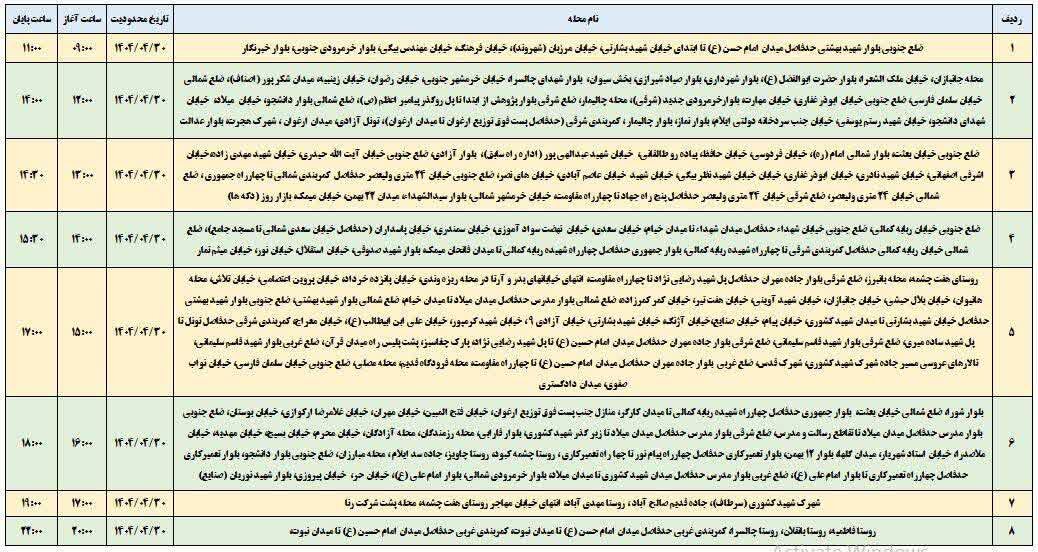 ردیف نام محله تاریخ محدودیت ساعت آغاز ساعت پایان
۱ ضلع جنوبی بلوار شهید بهشتی حدفاصل میدان امام حسن (ع) تا ابتدای خیابان شهید بشارتی، خیابان مرزبان (شهروند)، خیابان فرهنگ، خیابان مهندس بیگی، بلوار خرمرودی جنوبی، بلوار خبرنگار ۱۴۰۴/۰۴/۳۰ ۰۹:۰۰ ۱۱:۰۰
محله جانبازان، خیابان ملک الشعرا، بلوار حضرت ابوالفضل (ع)، بلوار شهرداری، بلوار صیاد شیرازی، بخش سیوان، بلوار شهدای چالسرا، خیابان خرمشهر جنوبی، خیابان رضوان، خیابان زینبیه، میدان شکرپور (اصناف)، ضلع شمالی
۲ خیابان سلمان فارسی، ضلع جنوبی خیابان ابوذر غفاری، خیابان مهارت، بلوارخرمرودی جدید (شرقی)، محله چالیمار، ضلع شرقی بلوار پژوهش از ابتدا تا پل روگذر پیامبر اعظم (ص)، ضلع شمالی بلوار دانشجو، خیابان میلاد، خیابان ۱۴۰۴/۰۴/۳۰ ۱۲:۰۰ ۱۴:۰۰
شهدای دانشجو، خیابان شهید رستم یوسفی، خیابان جنب سردخانه دولتی ایلام، بلوار نماز، بلوار چالیمار، کمربندی شرقی (حدفاصل پست فوق توزیع ارغوان تا میدان ارغوان)، تونل آزادی، میدان ارغوان، شهرک هجرت، بلوار عدالت
ضلع جنوبی خیابان بعثت، بلوار شمالی امام (ره)، خیابان فردوسی، خیابان حافظ، پیاده رو طالقانی، خیابان شهید عبدالهی پور (اداره راه سابق)، بلوار آزادی، ضلع جنوبی خیابان آیت الله حیدری، خیابان شهید مهدی زاده، خیابان
۳ اشرفی اصفهانی، خیابان شهید نادری، خیابان ابوذر غفاری، خیابان شهید نظر بیگی، خیابان شهید خیابان عاصم آبادی، خیابان های نصر، ضلع جنوبی خیابان ۲۴ متری ولیعصر حدفاصل کمربندی شمالی تا چهارراه جمهوری، ضلع ۱۴۰۴/۰۴/۳۰ ۱۳:۰۰ ۱۴:۳۰
شمالی خیابان ۲۴ متری ولیعصر، ضلع شرقی خیابان ۲۴ متری ولیعصر حدفاصل پنج راه جهاد تا چهارراه مقاومت، خیابان خرمشهر شمالی، بلوار سیدالشهداء، میدان ۲۲ بهمن، خیابان میمک، بازار روز (دکه ها)
۴ ضلع جنوبی خیابان ربابه کمالی، ضلع جنوبی خیابان شهداء حدفاصل میدان شهداء تا میدان خیام، خیابان سعدی، خیابان نهضت سواد آموزی، خیابان سمندری، خیابان پاسداران (حدفاصل خیابان سعدی شمالی تا مسجد جامع)، ضلع ۱۴۰۴/۰۴/۳۰ ۱۴:۰۰ ۱۵:۳۰
شمالی خیابان ربابه کمالی حدفاصل کمربندی شرقی تا چهارراه شهیده ربابه کمالی، بلوار جمهوری حدفاصل چهارراه شهیده ربابه کمالی تا میدان فاتحان میمک، بلوار شهید صدوقی، خیابان استقلال، خیابان نور، خیابان میثم تمار
روستای هفت چشمه، محله بانبرز، ضلع شرقی بلوار جاده مهران حدفاصل پل شهید رضایی نژاد تا چهارراه مقاومت، انتهای خیابانهای بدر و آرتا در محله ریزه وندی، خیابان پانزده خرداد، خیابان پروین اعتصامی، خیابان تلاش، محله
هانیوان، خیابان بلال حبشی، خیابان جانبازان، خیابان شهید آوینی، خیابان هفت تیر، خیابان کمر کمرزاده، ضلع شمالی بلوار مدرس حدفاصل میدان میلاد تا میدان خیام، ضلع شمالی بلوار شهید بهشتی، ضلع جنوبی بلوار شهید بهشتی
۵ حدفاصل خیابان شهید بشارتی تا میدان شهید کشوری، خیابان پیام، خیابان صنایع، خیابان آژنگ، خیابان شهید بشارتی، خیابان آزادی ۹، خیابان شهید کرمپور، خیابان علی ابن ابیطالب (ع)، خیابان معراج، کمربندی شرقی حدفاصل تونل تا ۱۴۰۴/۰۴/۳۰ ۱۵:۰۰ ۱۷:۰۰
پل شهید ساده میری، ضلع شرقی بلوار شهید قاسم سلیمانی، ضلع شرقی بلوار جاده مهران حدفاصل میدان امام حسین (ع) تا پل شهید رضایی نژاد، پارک چغاسبز، پشت پلیس راه میدان قرآن، ضلع غربی بلوار شهید قاسم سلیمانی،
تالارهای عروسی مسیر جاده شهرک شهید کشوری، شهرک قدس، ضلع غربی بلوار جاده مهران حدفاصل میدان امام حسین (ع) تا چهارراه مقاومت، محله فرودگاه قدیم، محله مصلی، ضلع جنوبی خیابان سلمان فارسی، خیابان نواب
صفوی، میدان دادگستری
بلوار شورا، ضلع شمالی خیابان بعثت، بلوار جمهوری حدفاصل چهارراه شهیده ربابه کمالی تا میدان کارگر، منازل جنب پست فوق توزیع ارغوان، خیابان فتح المبین، خیابان مهران، خیابان غلامرضا ارکوازی، خیابان بوستان، ضلع جنوبی
۶ بلوار مدرس حدفاصل میدان میلاد تا تقاطع رسالت و مدرس، ضلع شرقی بلوار مدرس حدفاصل میدان میلاد تا زیر گذر شهید کشوری، بلوار فارابی، محله رزمندگان، محله آزادگان، خیابان محرم، خیابان بسیج، خیابان مهدیه، خیابان ۱۴۰۴/۰۴/۳۰ ۱۶:۰۰ ۱۸:۰۰
ملاصدرا، خیابان استاد شهریار، میدان گلها، بلوار ۱۲ بهمن، بلوار تعمیرکاری حدفاصل چهارراه پیام نور تا چهارراه تعمیرکاری، روستا چشمه کبود، روستا چاویز، جاده سد ایلام، محله مبارزان، ضلع جنوبی بلوار دانشجو، بلوار تعمیرکاری
حدفاصل چهارراه تعمیرکاری تا بلوار امام علی (ع)، ضلع غربی بلوار مدرس حدفاصل میدان شهید کشوری تا میدان میلاد، بلوار خرمرودی شمالی، بلوار امام علی (ع)، خیابان حر، خیابان پیروزی، بلوار شهید نوریان (صنایع)
۷ شهرک شهید کشوری (سرطاف)، جاده قدیم صالح آباد، روستا مهدی آباد، انتهای خیابان مهاجر روستای هفت چشمه، محله پشت شرکت رنا ۱۴۰۴/۰۴/۳۰ ۱۷:۰۰ ۱۹:۰۰
۸ روستا فاطمیه، روستا بانقلان، روستا چالسرا، کمربندی غربی حدفاصل میدان امام حسن (ع) تا میدان نبوت، کمربندی غربی حدفاصل میدان امام حسین (ع) تا میدان نبوت، ۱۴۰۴/۰۴/۳۰ ۲۰:۰۰ ۲۲:۰۰
Activate Windows